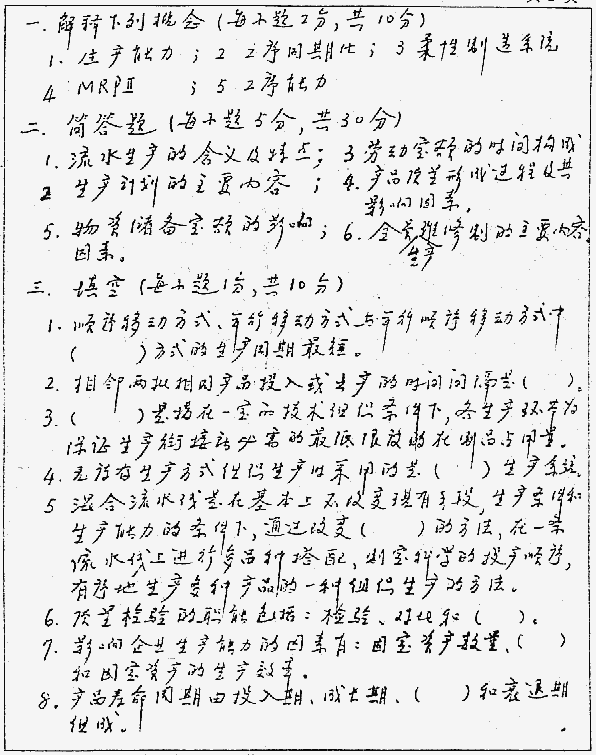 一. 解释下列概念 (每小题2分, 共10分)
1. 生产能力 ; 2 工序同期化 ; 3 柔性制造系统
4 MRPⅡ ; 5. 工序能力
二. 简答题 (每小题5分, 共30分)
1. 流水生产的含义及特点; 3 劳动定额的时间构成
2 生产计划的主要内容 ; 4. 产品质量形成过程及其
影响因素。
5. 物资储备定额的影响 ; 6. 全员维修制的主要内容。
因素。 生产
三. 填空 (每小题1分, 共10分)
1. 顺序移动方式、平行移动方式与平行顺序移动方式中
( )方式的生产周期最短。
2. 相邻两批相同产品投入或生产的时间间隔是( )。
3. ( )是指在一定的技术组织条件下, 各生产环节为
保证生产衔接所必需的最低限度的在制品占用量。
4. 无库存生产方式组织生产时采用的是( )生产系统.
5 混合流水线是在基本上不改变现有手段, 生产条件和
生产能力的条件下, 通过改变( )的方法, 在一条
流水线上进行多品种搭配, 制定科学的投产顺序,
有序地生产多种产品的一种组织生产的方法。
6. 质量检验的职能包括: 检验、对比和( )。
7. 影响企业生产能力的因素有: 固定资产数量、( )
和固定资产的生产效率。
8. 产品寿命周期由投入期、成长期、( )和衰退期
组成。